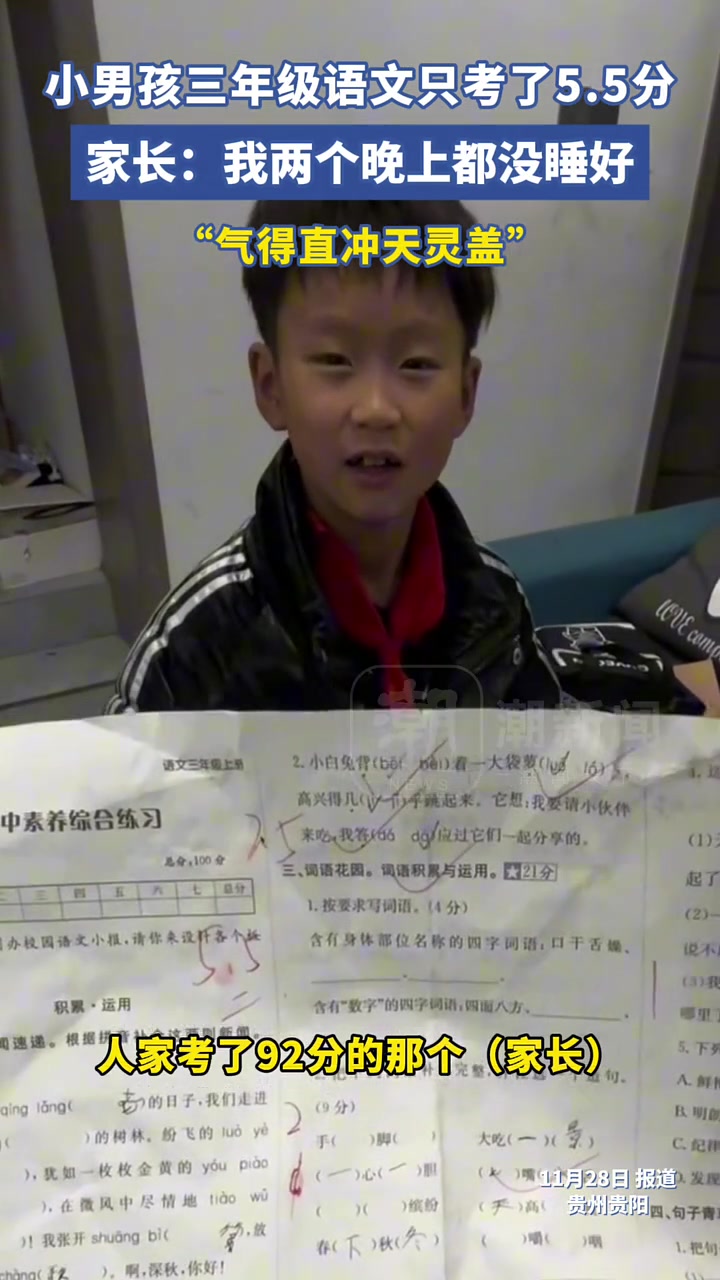 小男孩三年级语文只考了5.5分
家长：我两个晚上都没睡好
“气得直冲天灵盖”
LOVE
潮新闻
语文三年级上册
中素养综合练习
总分：100分
二 三 四 五 六 七 总分
办校园语文小报，请你来设计各个板
5.5
积累·运用
闻速递。根据拼音补全这两则新闻。
qing lǎng( )的日子，我们走进
( )的树林。纷飞的 luò yè
)，犹如一枚枚金黄的 yóu piào
)，在微风中尽情地 tiào wǔ
)！我张开 shuāng bì( )，放
chàng( )。啊，深秋，你好！
2.小白兔背(bēi bèi)着一大袋萝(luó ló)卜，
高兴得几( )乎跳起来。它想：我要请小伙伴
来吃，我答(dā dá)应过它们一起分享的。
2.5
三、词语花园。词语积累与运用。★21分
1.按要求写词语。(4分)
含有身体部位名称的四字词语：口干舌燥、
含有“数字”的四字词语：四面八方、
(9分)
2
手( )脚( ) 大吃(一)(景)
(一)心(一)胆
( )( )缤纷 (天)高( )
春(下)秋(冬) ( )唱( )唱
(1)
起了
(2)
说不
(3)我
哪里
5.下列
A.鲜艳
B.明朗
C.纪律
D.发现
四、句子青
1.把句
人家考了92分的那个（家长）
11月28日 报道
贵州贵阳